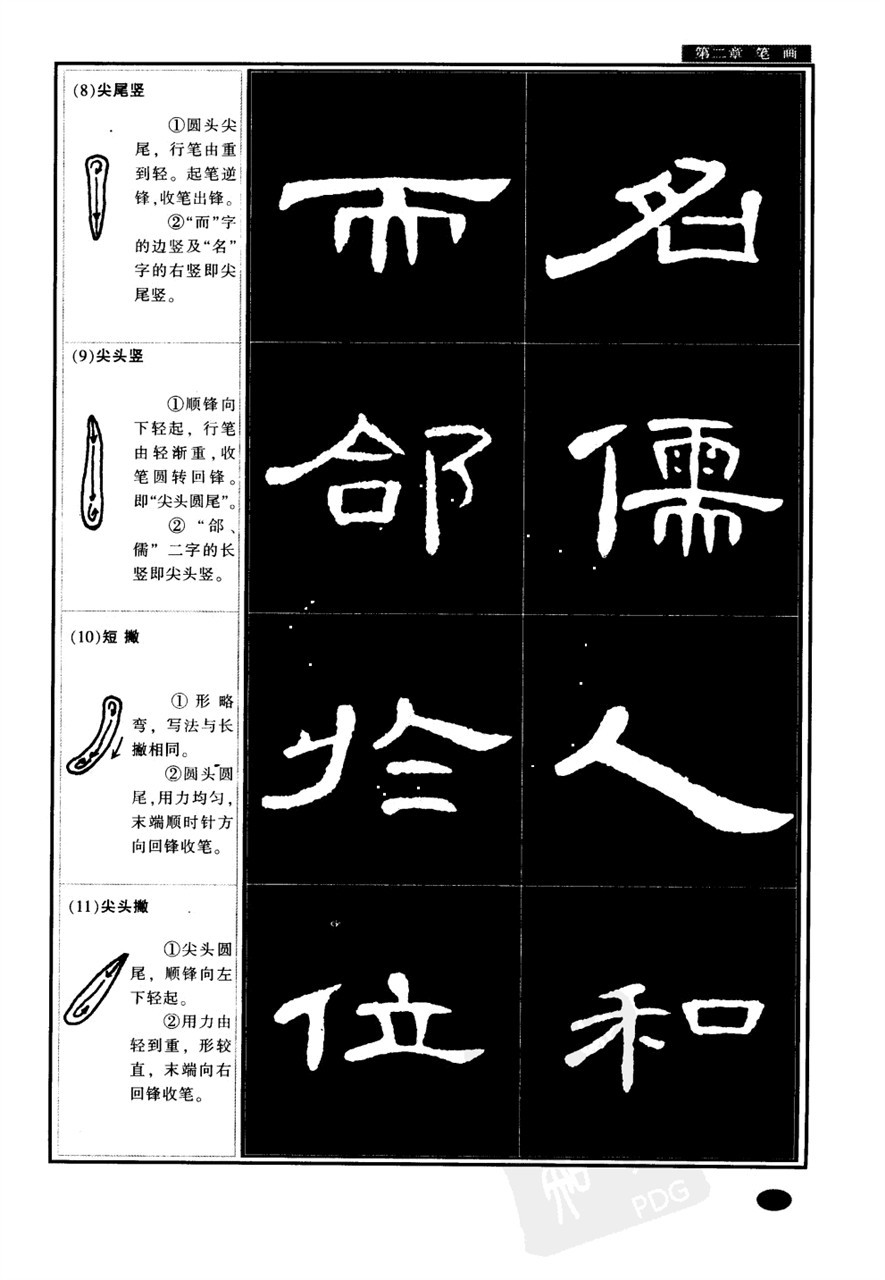 第二章 笔 画
(8)尖尾竖
①圆头尖
尾，行笔由重
到轻。起笔逆
锋,收笔出锋。
②“而”字
的边竖及“名”
字的右竖即尖
尾竖。
而 名
(9)尖头竖
①顺锋向
下轻起，行笔
由轻渐重,收
笔圆转回锋。
即“尖头圆尾”。
② “郃、
儒”二字的长
竖即尖头竖。
郃 儒
(10)短 撇
① 形 略
弯，写法与长
撇相同。
②圆头圆
尾,用力均匀,
末端顺时针方
向回锋收笔。
於 人
(11)尖头撇
①尖头圆
尾，顺锋向左
下轻起。
②用力由
轻到重，形较
直，末端向右
回锋收笔。
位 和
PDG